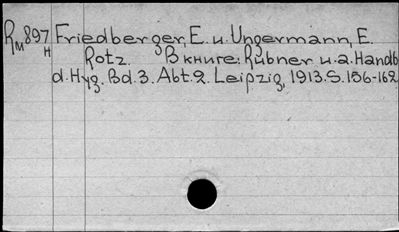 Rм897н Friedberger, E. u. Ungermann, E.
Rotz. В книге: Rubner u.a. Handb
d. Hyg. Bd.3. Abt.2. Leipzig, 1913. S. 156-162